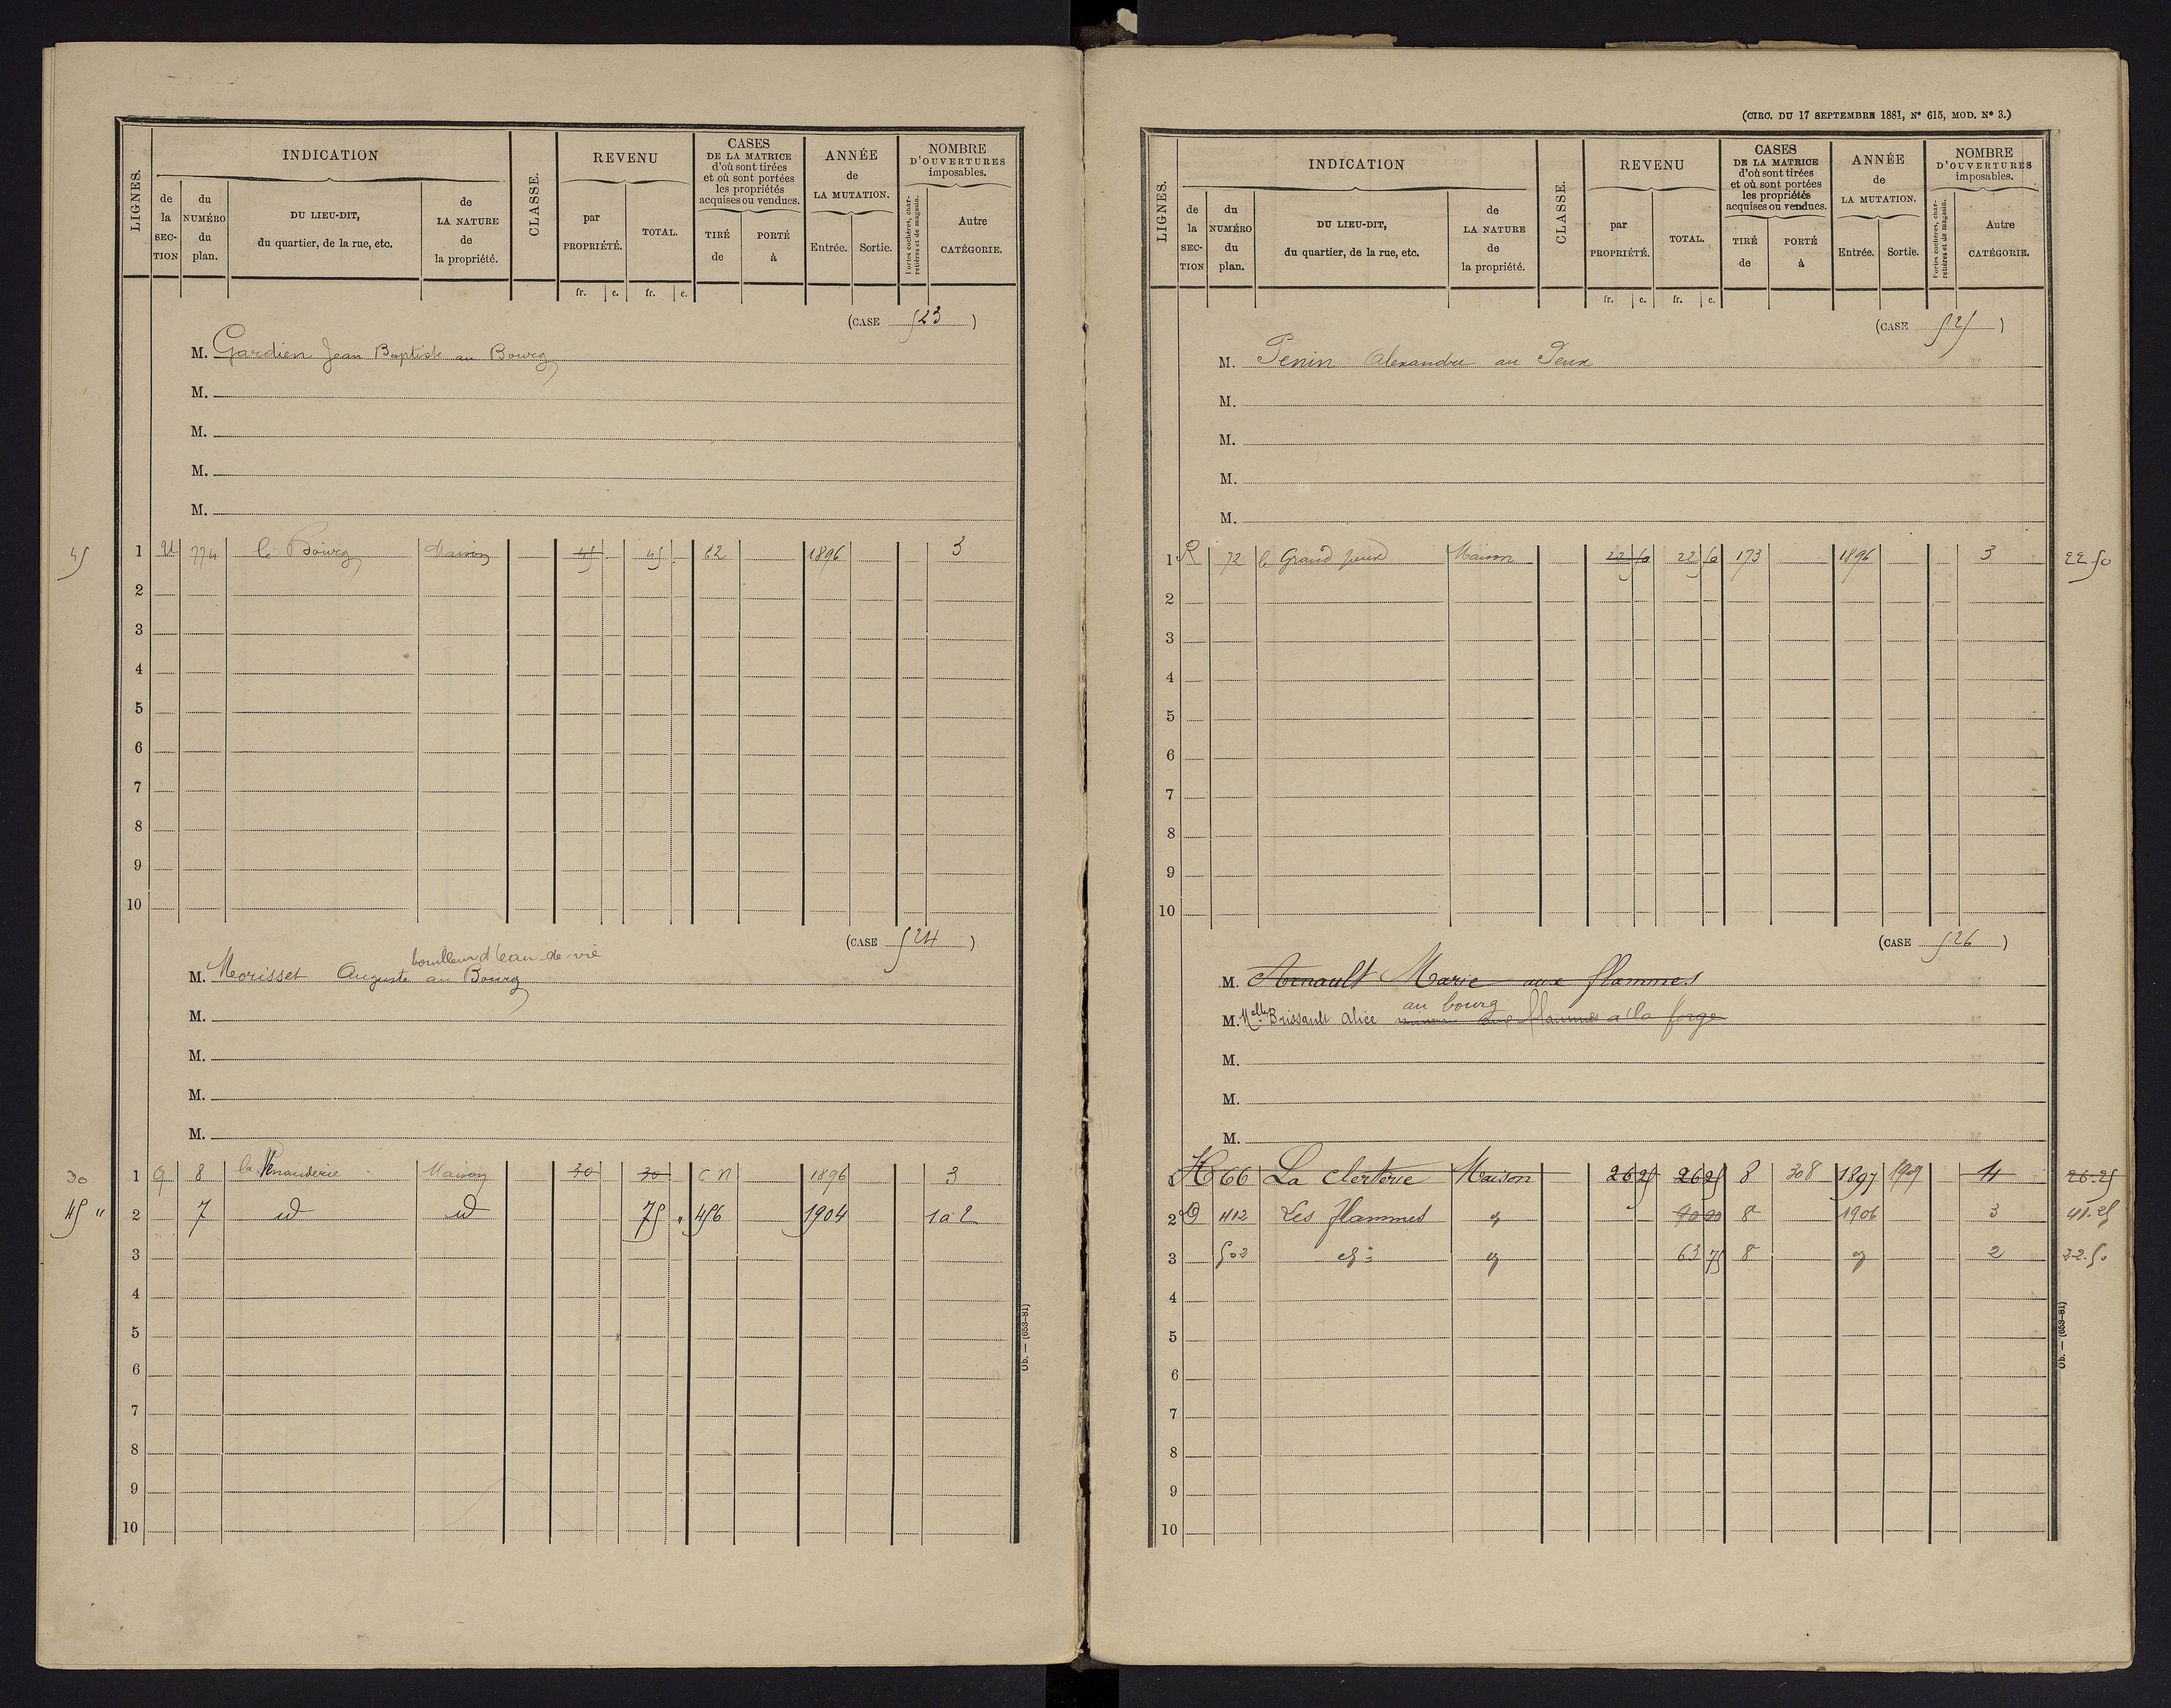 LIGNES.
INDICATION
de la SECTION
du NUMÉRO du plan.
DU LIEU-DIT, du quartier, de la rue, etc.
de LA NATURE de la propriété.
CLASSE.
REVENU
par PROPRIÉTÉ.
TOTAL.
fr. c. fr. c.
CASES DE LA MATRICE d'où sont tirées et où sont portées les propriétés acquises ou vendues.
TIRÉ de
PORTÉ à
ANNÉE de LA MUTATION.
Entrée. Sortie.
NOMBRE D'OUVERTURES imposables.
Portes cochères, charretières et de magasin.
Autre CATÉGORIE.
(CASE 523)
M. Gardien Jean Baptiste au Bourg
M.
M.
M.
M.
45 1 774 le Bourg Maison 45 45 62 1896 3
2
3
4
5
6
7
8
9
10
(CASE 524)
bouilleur d'eau-de-vie
M. Morisset Auguste au Bourg
M.
M.
M.
M.
30 1 Q 8 la Maison 30 30 C N 1896 3
45 " 2 7 id id 75 " 456 1904 1 à 2
3
4
5
6
7
8
9
10
Ob. — (653-81)
(CIRC. DU 17 SEPTEMBRE 1881, N° 615, MOD. N° 3.)
LIGNES.
INDICATION
de la SECTION
du NUMÉRO du plan.
DU LIEU-DIT, du quartier, de la rue, etc.
de LA NATURE de la propriété.
CLASSE.
REVENU
par PROPRIÉTÉ.
TOTAL.
fr. c. fr. c.
CASES DE LA MATRICE d'où sont tirées et où sont portées les propriétés acquises ou vendues.
TIRÉ de
PORTÉ à
ANNÉE de LA MUTATION.
Entrée. Sortie.
NOMBRE D'OUVERTURES imposables.
Portes cochères, charretières et de magasin.
Autre CATÉGORIE.
(CASE 525)
M. Penin Alexandre au Peux
M.
M.
M.
M.
1 R 72 le Grand peux Maison 22 50 22 50 173 1896 3 22 50
2
3
4
5
6
7
8
9
10
(CASE 526)
M. Arnault Marie aux flammes
au bourg
M. Melle Brissault Alice aux flammes a la forge
M.
M.
M.
H 66 La Clerterie Maison 26 25 26 25 8 308 1897 1909 4 26.25
2 O 412 Les flammes 90 00 8 1906 3 41.25
3 502 63 75 8 2 22.50
4
5
6
7
8
9
10
Ob. — (653-81)